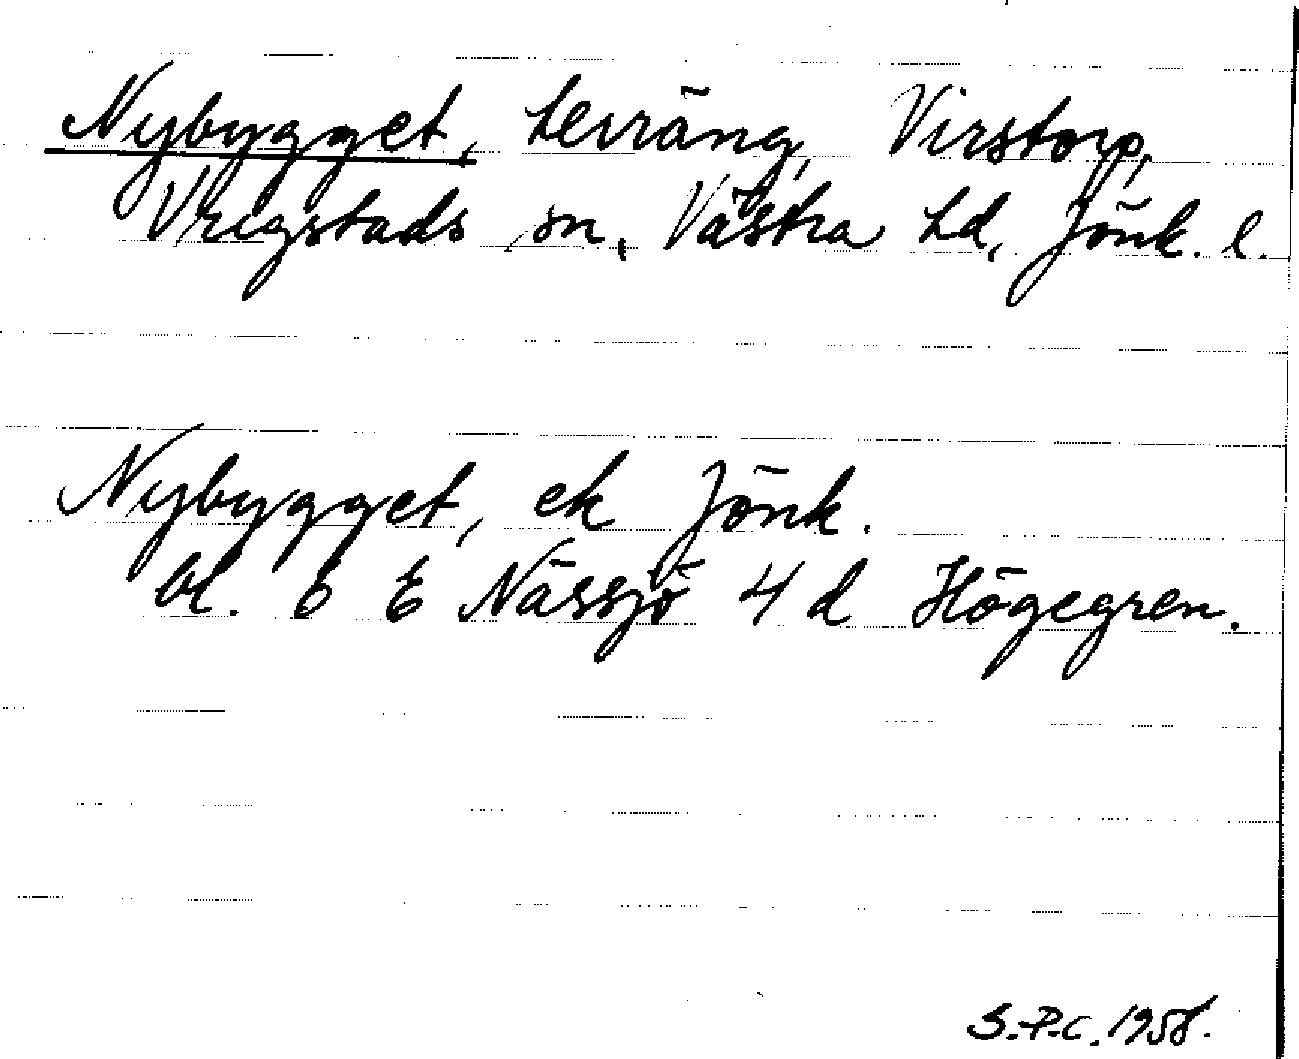 Nybygget, terräng, Virstorp,
Vrigstads sn, Västra hd, Jönk. l.
Nybygget, ek Jönk.
bl. 6 E Nässjö 4 d Högegren.
S.-P.C. 1958.